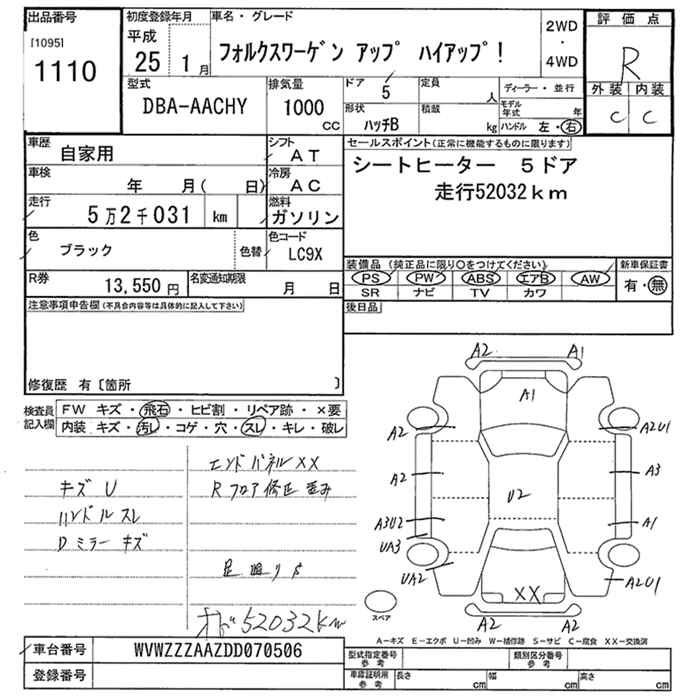 出品番号
[1095]
1110
初度登録年月
平成
25 1月
車名・グレード
フォルクスワーゲン アップ ハイアップ!
2WD
・
4WD
評価点
R
型式
DBA-AACHY
排気量
1000
CC
ドア
5
定員
人
形状
ハッチB
積載
kg
ディーラー・並行
モデル年式 年
ハンドル 左・右
外装 内装
C C
車歴
自家用
シフト
AT
車検
年 月( 日)
冷房
AC
走行
5万2千031 km
燃料
ガソリン
色
ブラック
色替
色コード
LC9X
R券
13,550円
名変通知期限
月 日
セールスポイント(正常に機能するものに限ります)
シートヒーター 5ドア
走行52032km
装備品(純正品に限り○をつけてください)
PS PW ABS エアB AW
SR ナビ TV カワ
新車保証書
有・無
後日品
注意事項申告欄(不具合内容等は具体的に記入して下さい)
修復歴 有〔箇所 〕
検査員
記入欄
FW キズ・飛石・ヒビ割・リペア跡・×要
内装 キズ・汚レ・コゲ・穴・スレ・キレ・破レ
エンドパネルXX
キズU
Rフロア修正歪み
ハンドルスレ
Dミラーキズ
足廻りS
オド52032km
A2 A1
A1
A2 A2U1
A2 A3
U2
A3U2 A1
UA3
UA2 A2U1
XX
A2 A2
スペア
A-キズ E-エクボ U-凹み W-補修跡 S-サビ C-腐食 XX-交換済
車台番号
WVWZZZAAZDD070506
登録番号
型式指定番号
参考
類別区分番号
参考
車庫証明用
参考
長さ cm
幅 cm
高さ cm